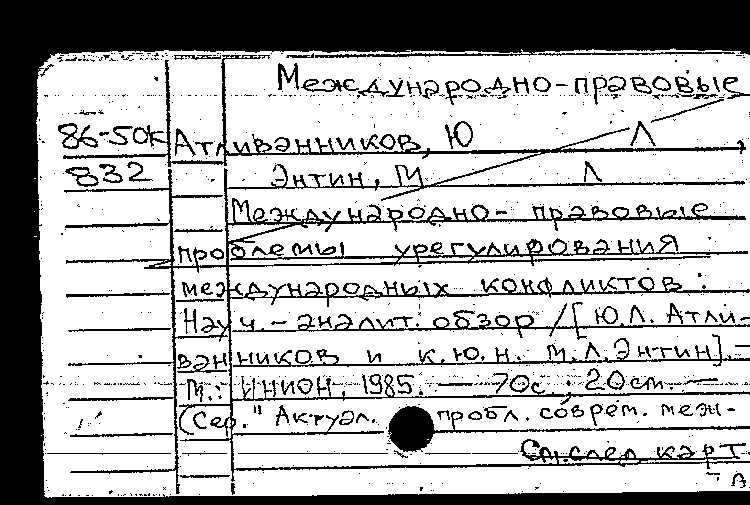 Международно-правовые
86-50к Атливанников, Ю Л
832 Энтин, М Л
Международно- правовые
проблемы урегулирования
международных конфликтов:
Науч.-аналит. обзор /[Ю.Л. Атли-
ванников и к.ю.н. М.Л.Энтин]. —
М.: ИНИОН, 1985. — 70с.; 20см. —
(Сер. "Актуал. пробл. соврем. меж-
См.след карт